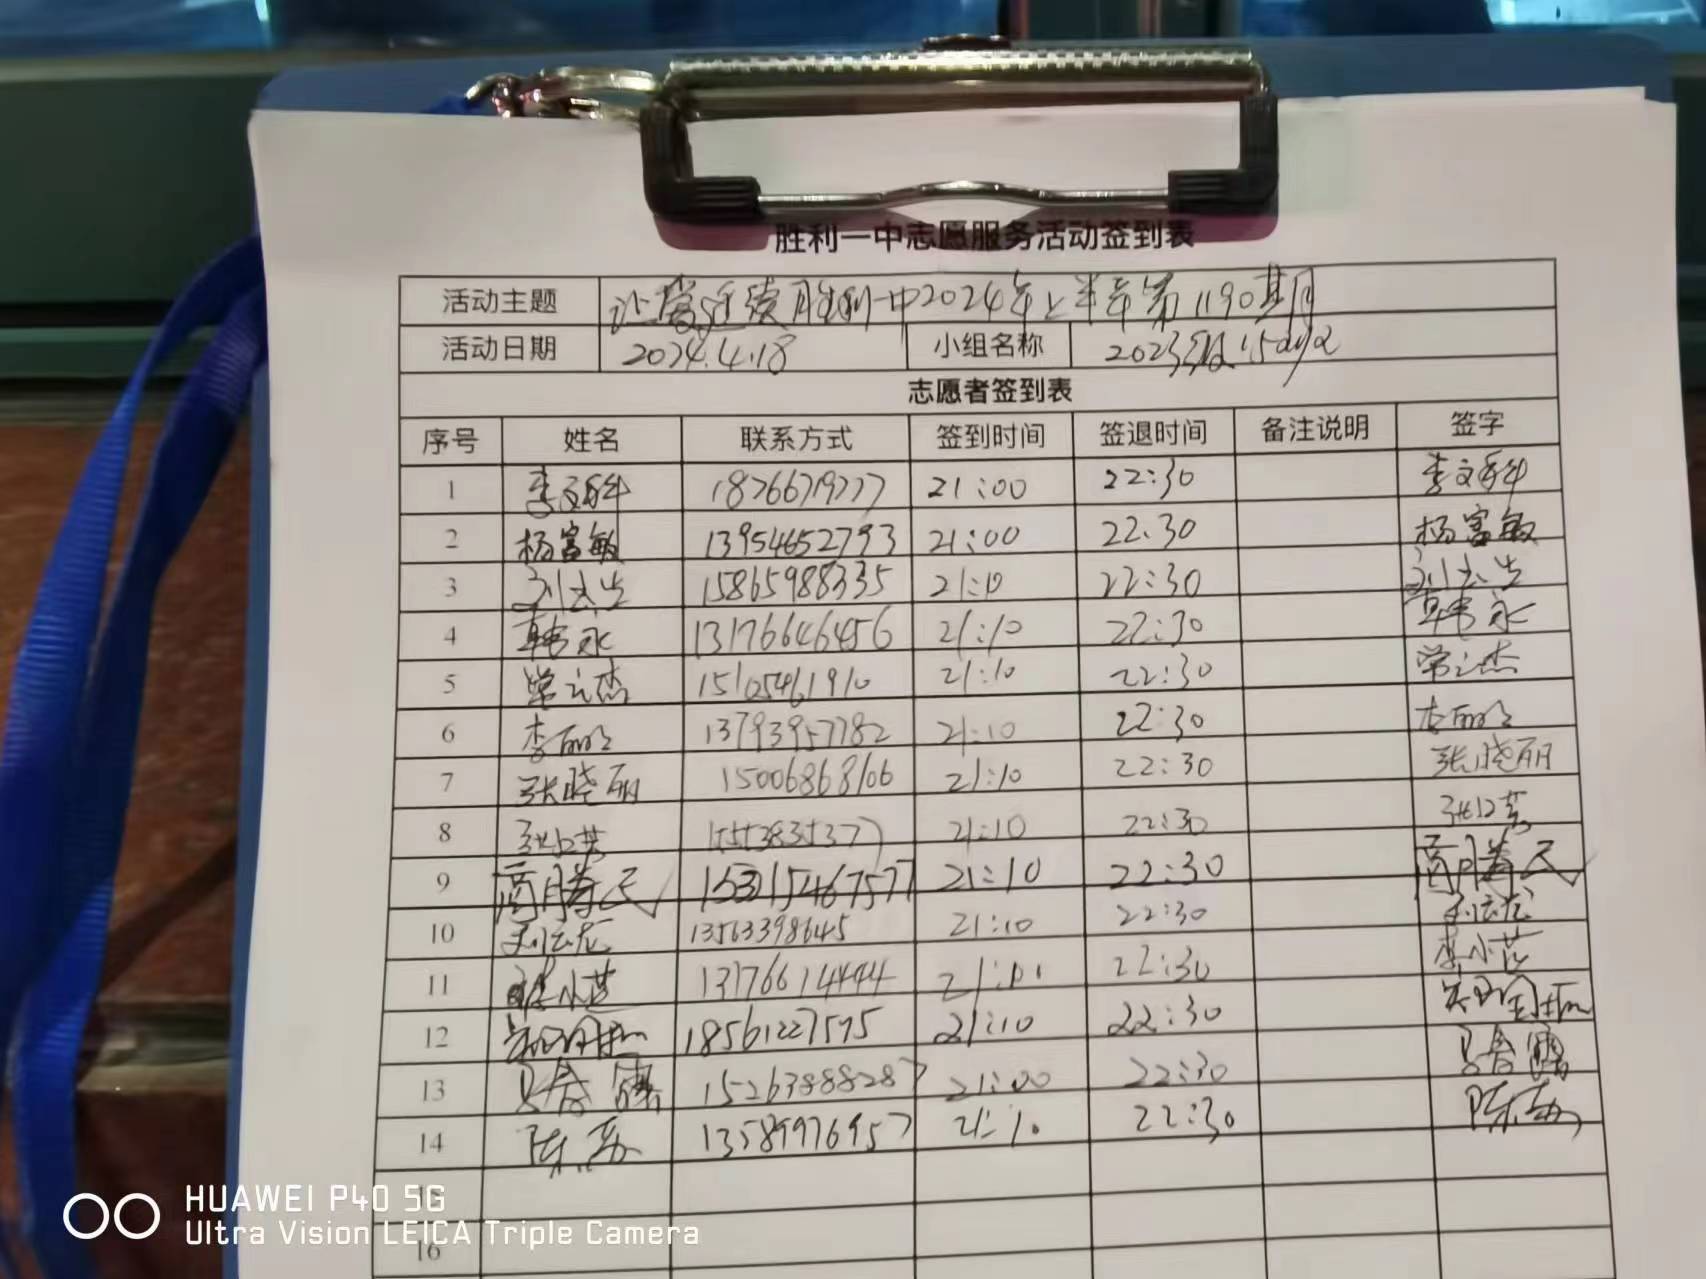 胜利一中志愿服务活动签到表
活动主题 让爱延续胜利一中2024年上半年第1190期
活动日期 2024.4.18 小组名称 2023级
志愿者签到表
序号 姓名 联系方式 签到时间 签退时间 备注说明 签字
1 李文科 18766719777 21:00 22:30 李文科
2 杨富敏 13954652793 21:00 22:30 杨富敏
3 15865988335 21:10 22:30
4 韩永 13176646456 21:10 22:30 韩永
5 常立杰 15105461910 21:10 22:30 常立杰
6 李丽 13793957782 21:10 22:30 李丽
7 张晓丽 15006868166 21:10 22:30 张晓丽
8 21:10 22:30
9 商腾飞 15315467577 21:10 22:30 商腾飞
10 刘云龙 13563398645 21:10 22:30 刘云龙
11 13176614444 22:30
12 18561227575 21:10 22:30
13 15263888287 21:00 22:30
14 陈磊 13589976957 22:30 陈磊
15
16
HUAWEI P40 5G
Ultra Vision LEICA Triple Camera